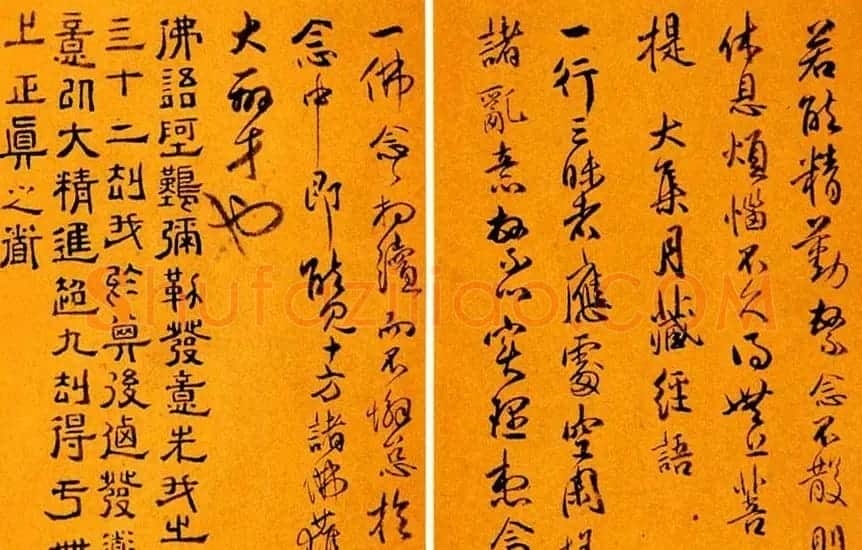 若能精勤繫念不散則
休息煩惱不久得無上菩
提 大集月藏經語
一行三昧者應處空閒捨
諸亂意繫心實理想念
一佛念念相續而不懈怠於
念中即能見十方諸佛獲
大辯才也
佛語阿難彌勒發意先我之
三十二劫我於其後迺發道
意以大精進超九劫得亐無
上正真之道